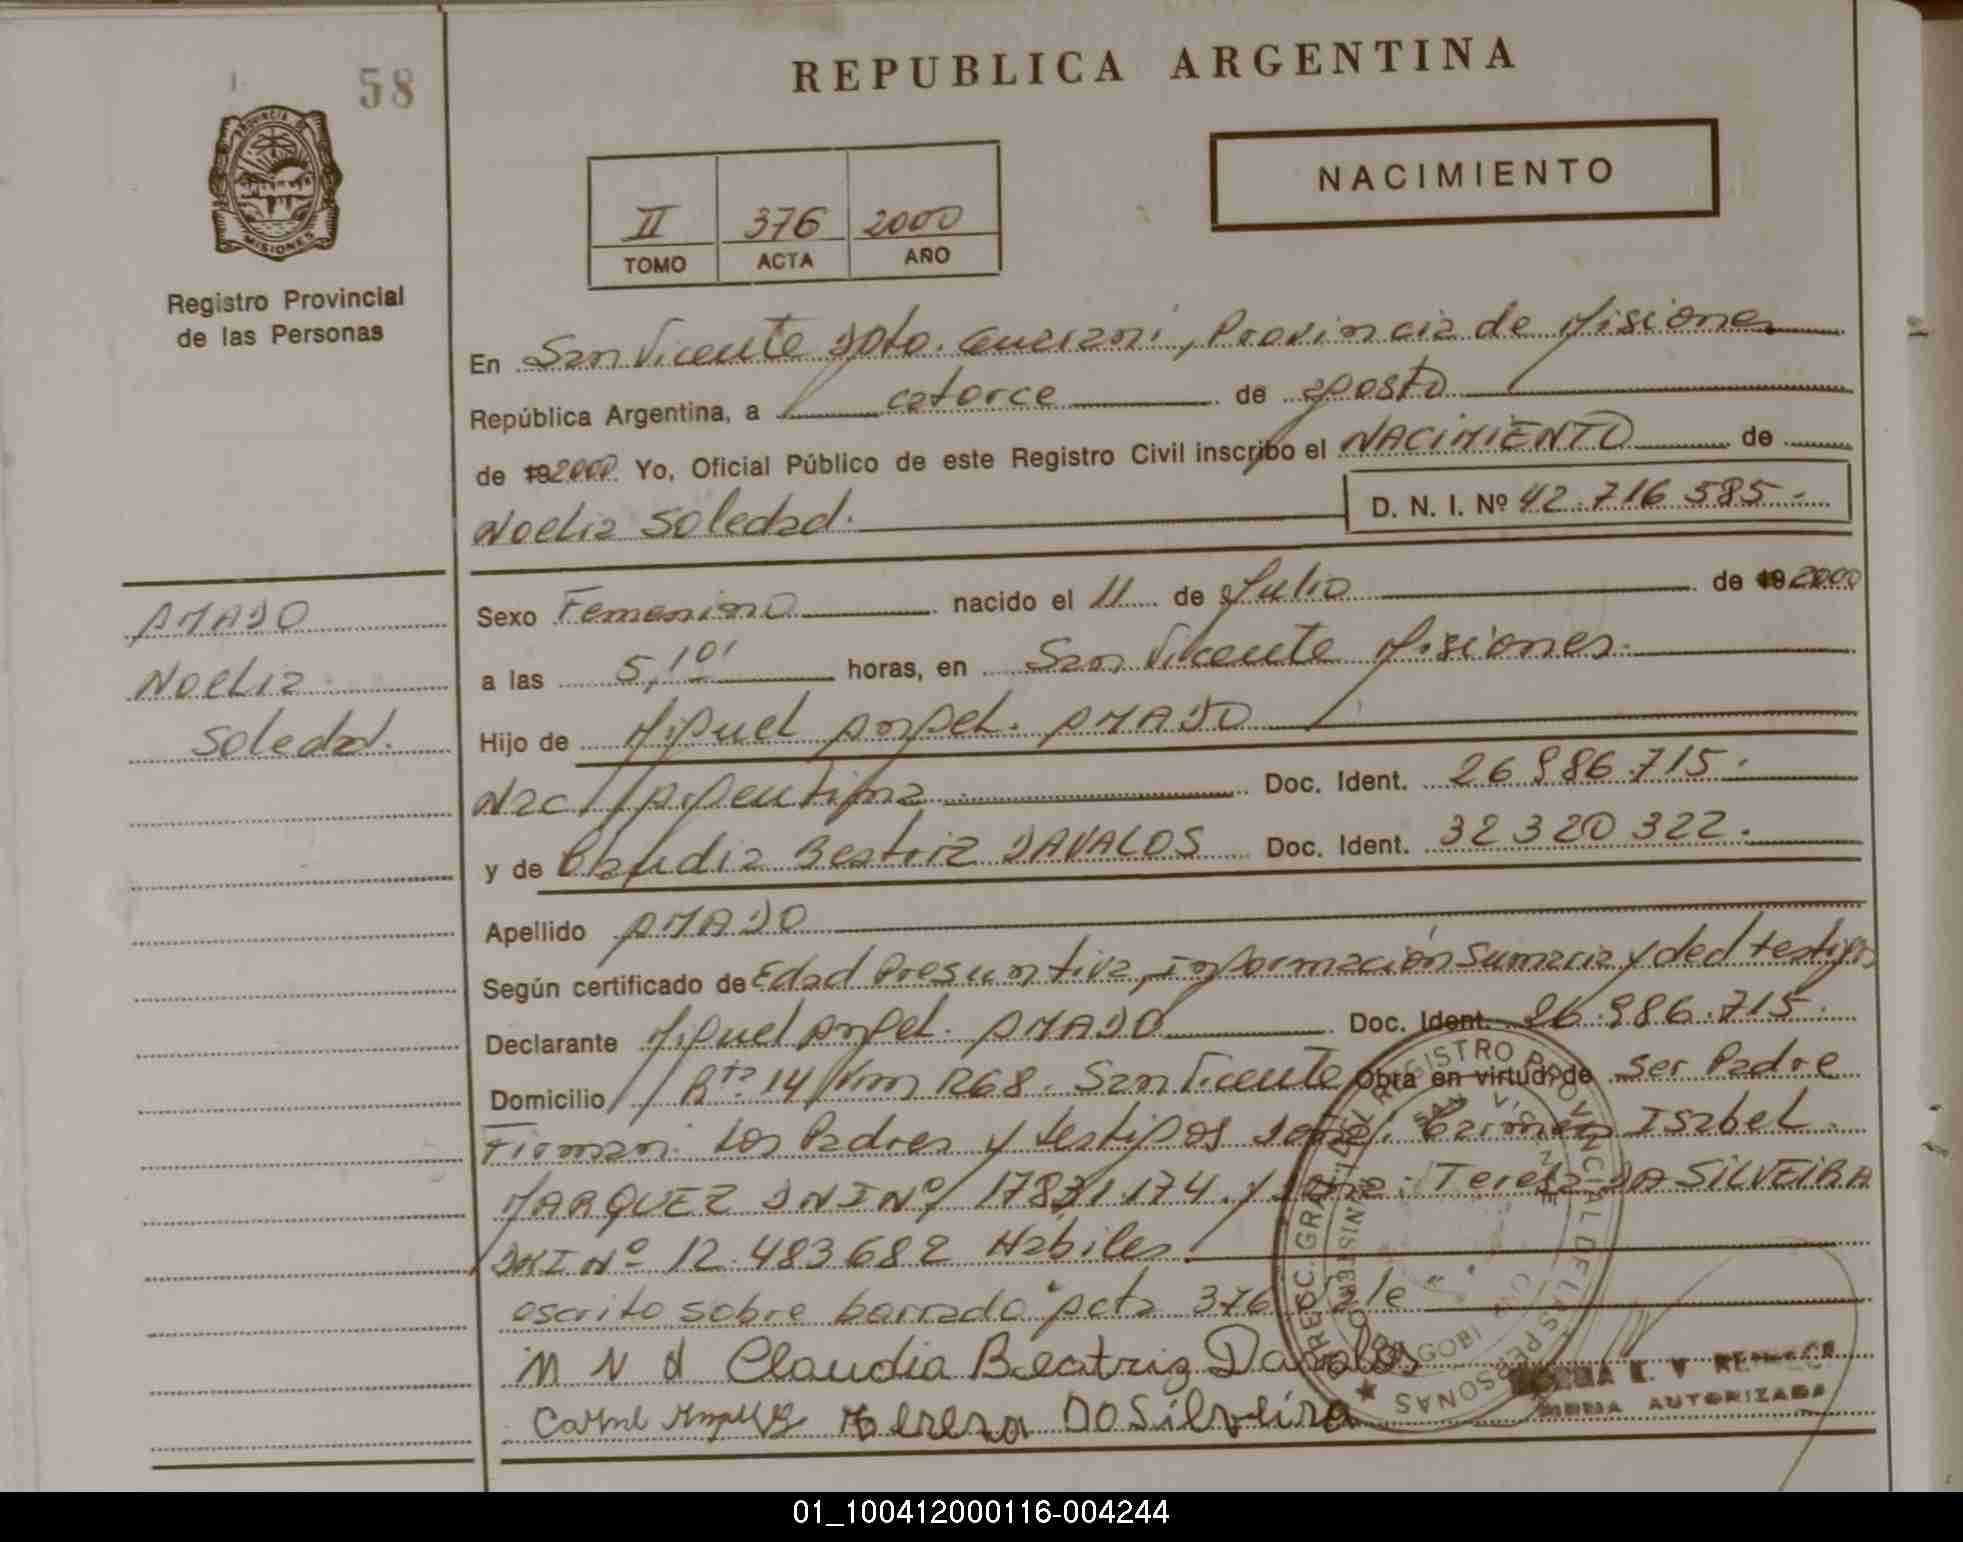 58
REPUBLICA ARGENTINA
NACIMIENTO
PROVINCIA DE
MISIONES
Registro Provincial
de las Personas
II 376 2000
TOMO ACTA AÑO
En San Vicente Dpto. Guarani, Provincia de Misiones
República Argentina, a catorce de agosto
de 192000. Yo, Oficial Público de este Registro Civil inscribo el NACIMIENTO de
Noelia Soledad. D. N. I. Nº 42.716.585.-
AMADO
Noelia
Soledad.
Sexo Femenino nacido el 11 de Julio de 19 2000
a las 5,10' horas, en San Vicente Misiones.
Hijo de Miguel Angel. AMADO
Nac Argentina Doc. Ident. 26 986.715.
y de Claudia Beatriz DAVALOS Doc. Ident. 32 320 322.
Apellido AMADO
Según certificado de Edad Presuntiva, Información Sumaria y de testigos
Declarante Miguel Angel. AMADO Doc. Ident. 26.986.715.
Domicilio Rta 14 Km 1268. San Vicente Obra en virtud de ser Padre
Firman: Los Padres y testigos Carmen Isabel.
MARQUEZ DNI Nº 17831.174. y Teresa DA SILVEIRA
DNI Nº 12.483 682 Habiles.
escrito sobre borrado "Acta 376" Vale
M N A Claudia Beatriz Davalos
Tereza DO Silveira
REGISTRO PROVINCIAL DE LAS PERSONAS
SAN VICENTE
AUTORIZADA
01_100412000116-004244